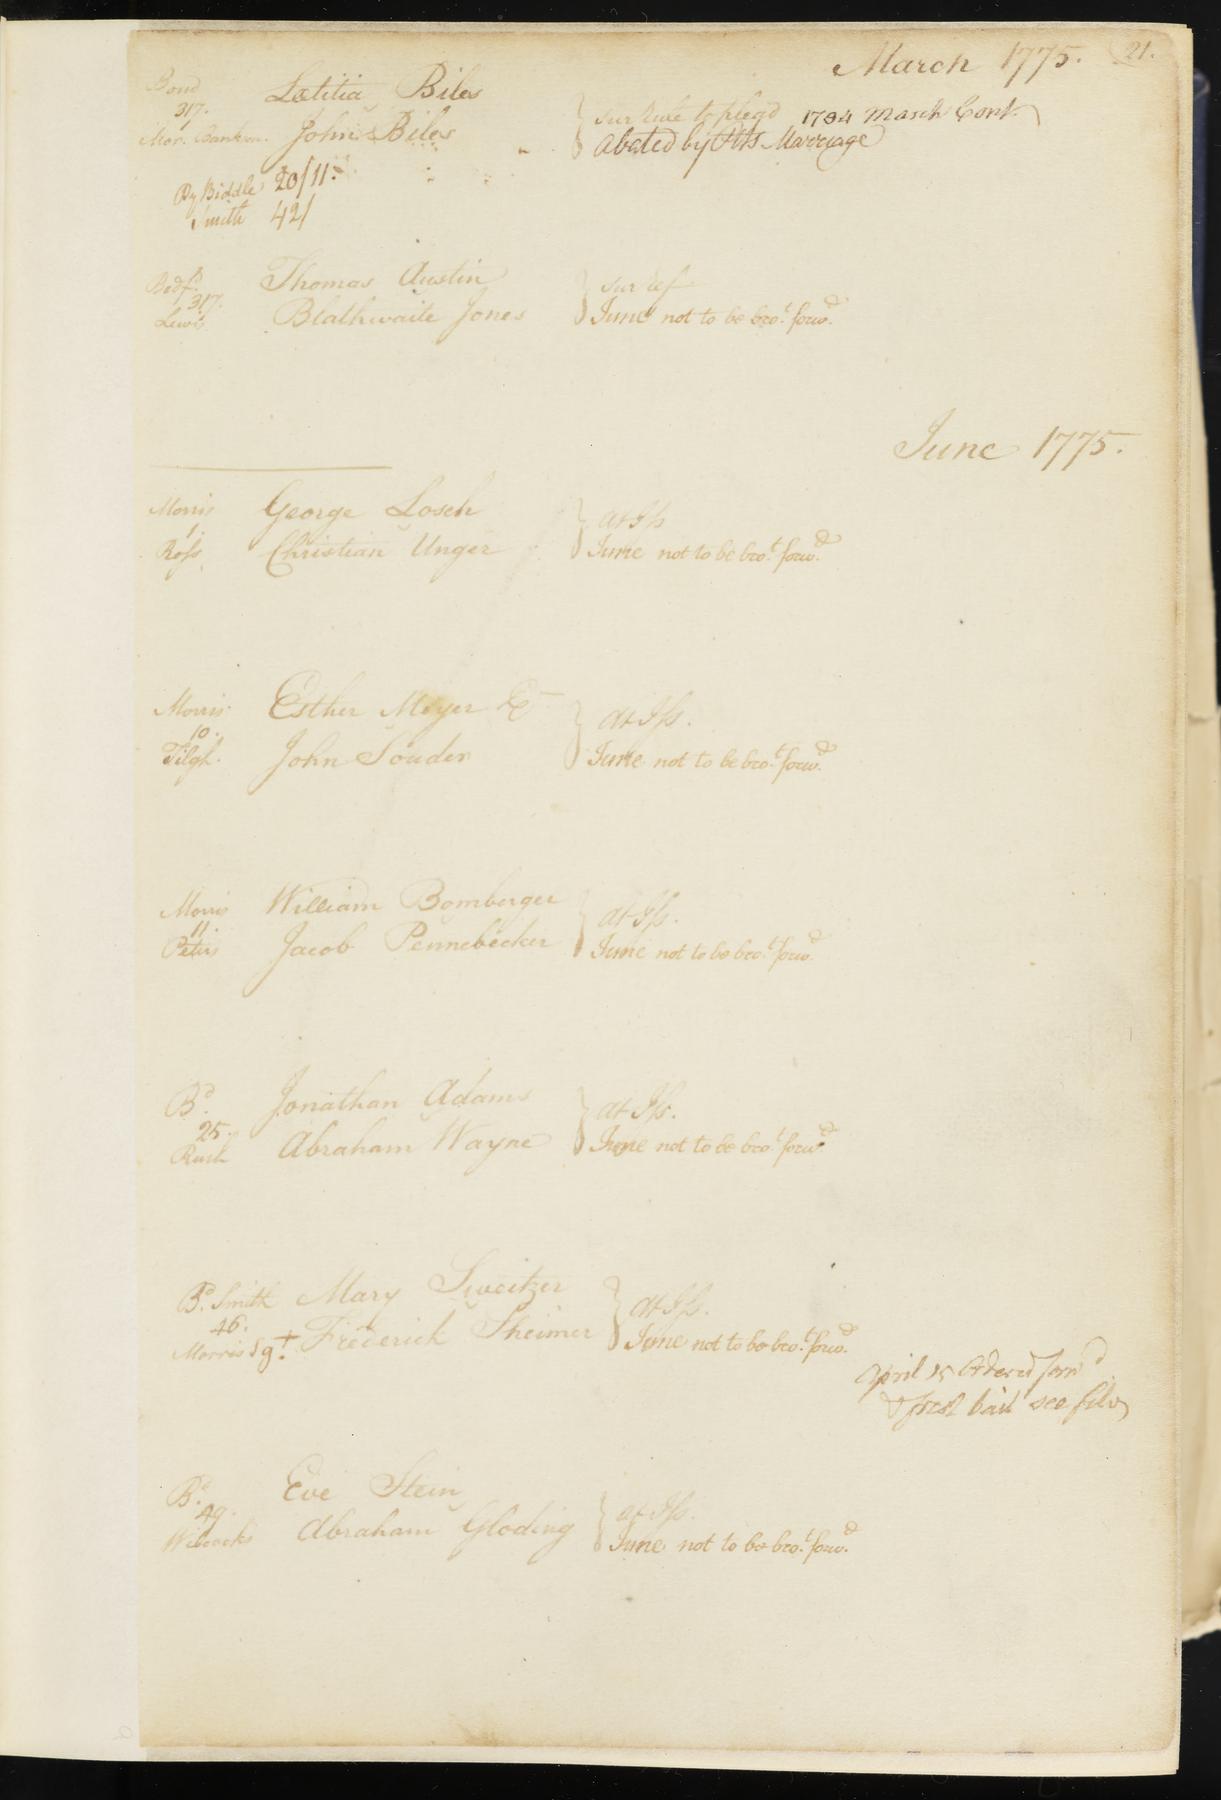 March 1775. 21.
Bond Lætitia Biles
317. sur Rule to plead 1784 March Cont.
Mor. John Biles Abated by Plts Marriage
By Biddle 20/11
Smith 42/
Bedf. Thomas Austin sur ref
317.
Lewis Blathwaite Jones June not to be bro.t forw.d
June 1775.
Morris George Losch at Iss
1.
Ross Christian Unger June not to be bro.t forw.d
Morris Esther Meyer Et at Iss.
10.
Tilgh. John Souder June not to be bro.t forw.d
Morris William Bomberger at Iss.
11.
Peters Jacob Pennebecker June not to be bro.t forw.d
B.d Jonathan Adams at Iss.
25.
Rush Abraham Wayne June not to be bro.t forw.d
B.d Smith Mary Sweitzer at Iss.
46.
Morris Sg.t Frederick Sheimer June not to be bro.t forw.d
April 15 Ordered forw.d
& bail see file
B.d Eve Stein at Iss.
49.
Wilcocks Abraham Gloding June not to be bro.t forw.d